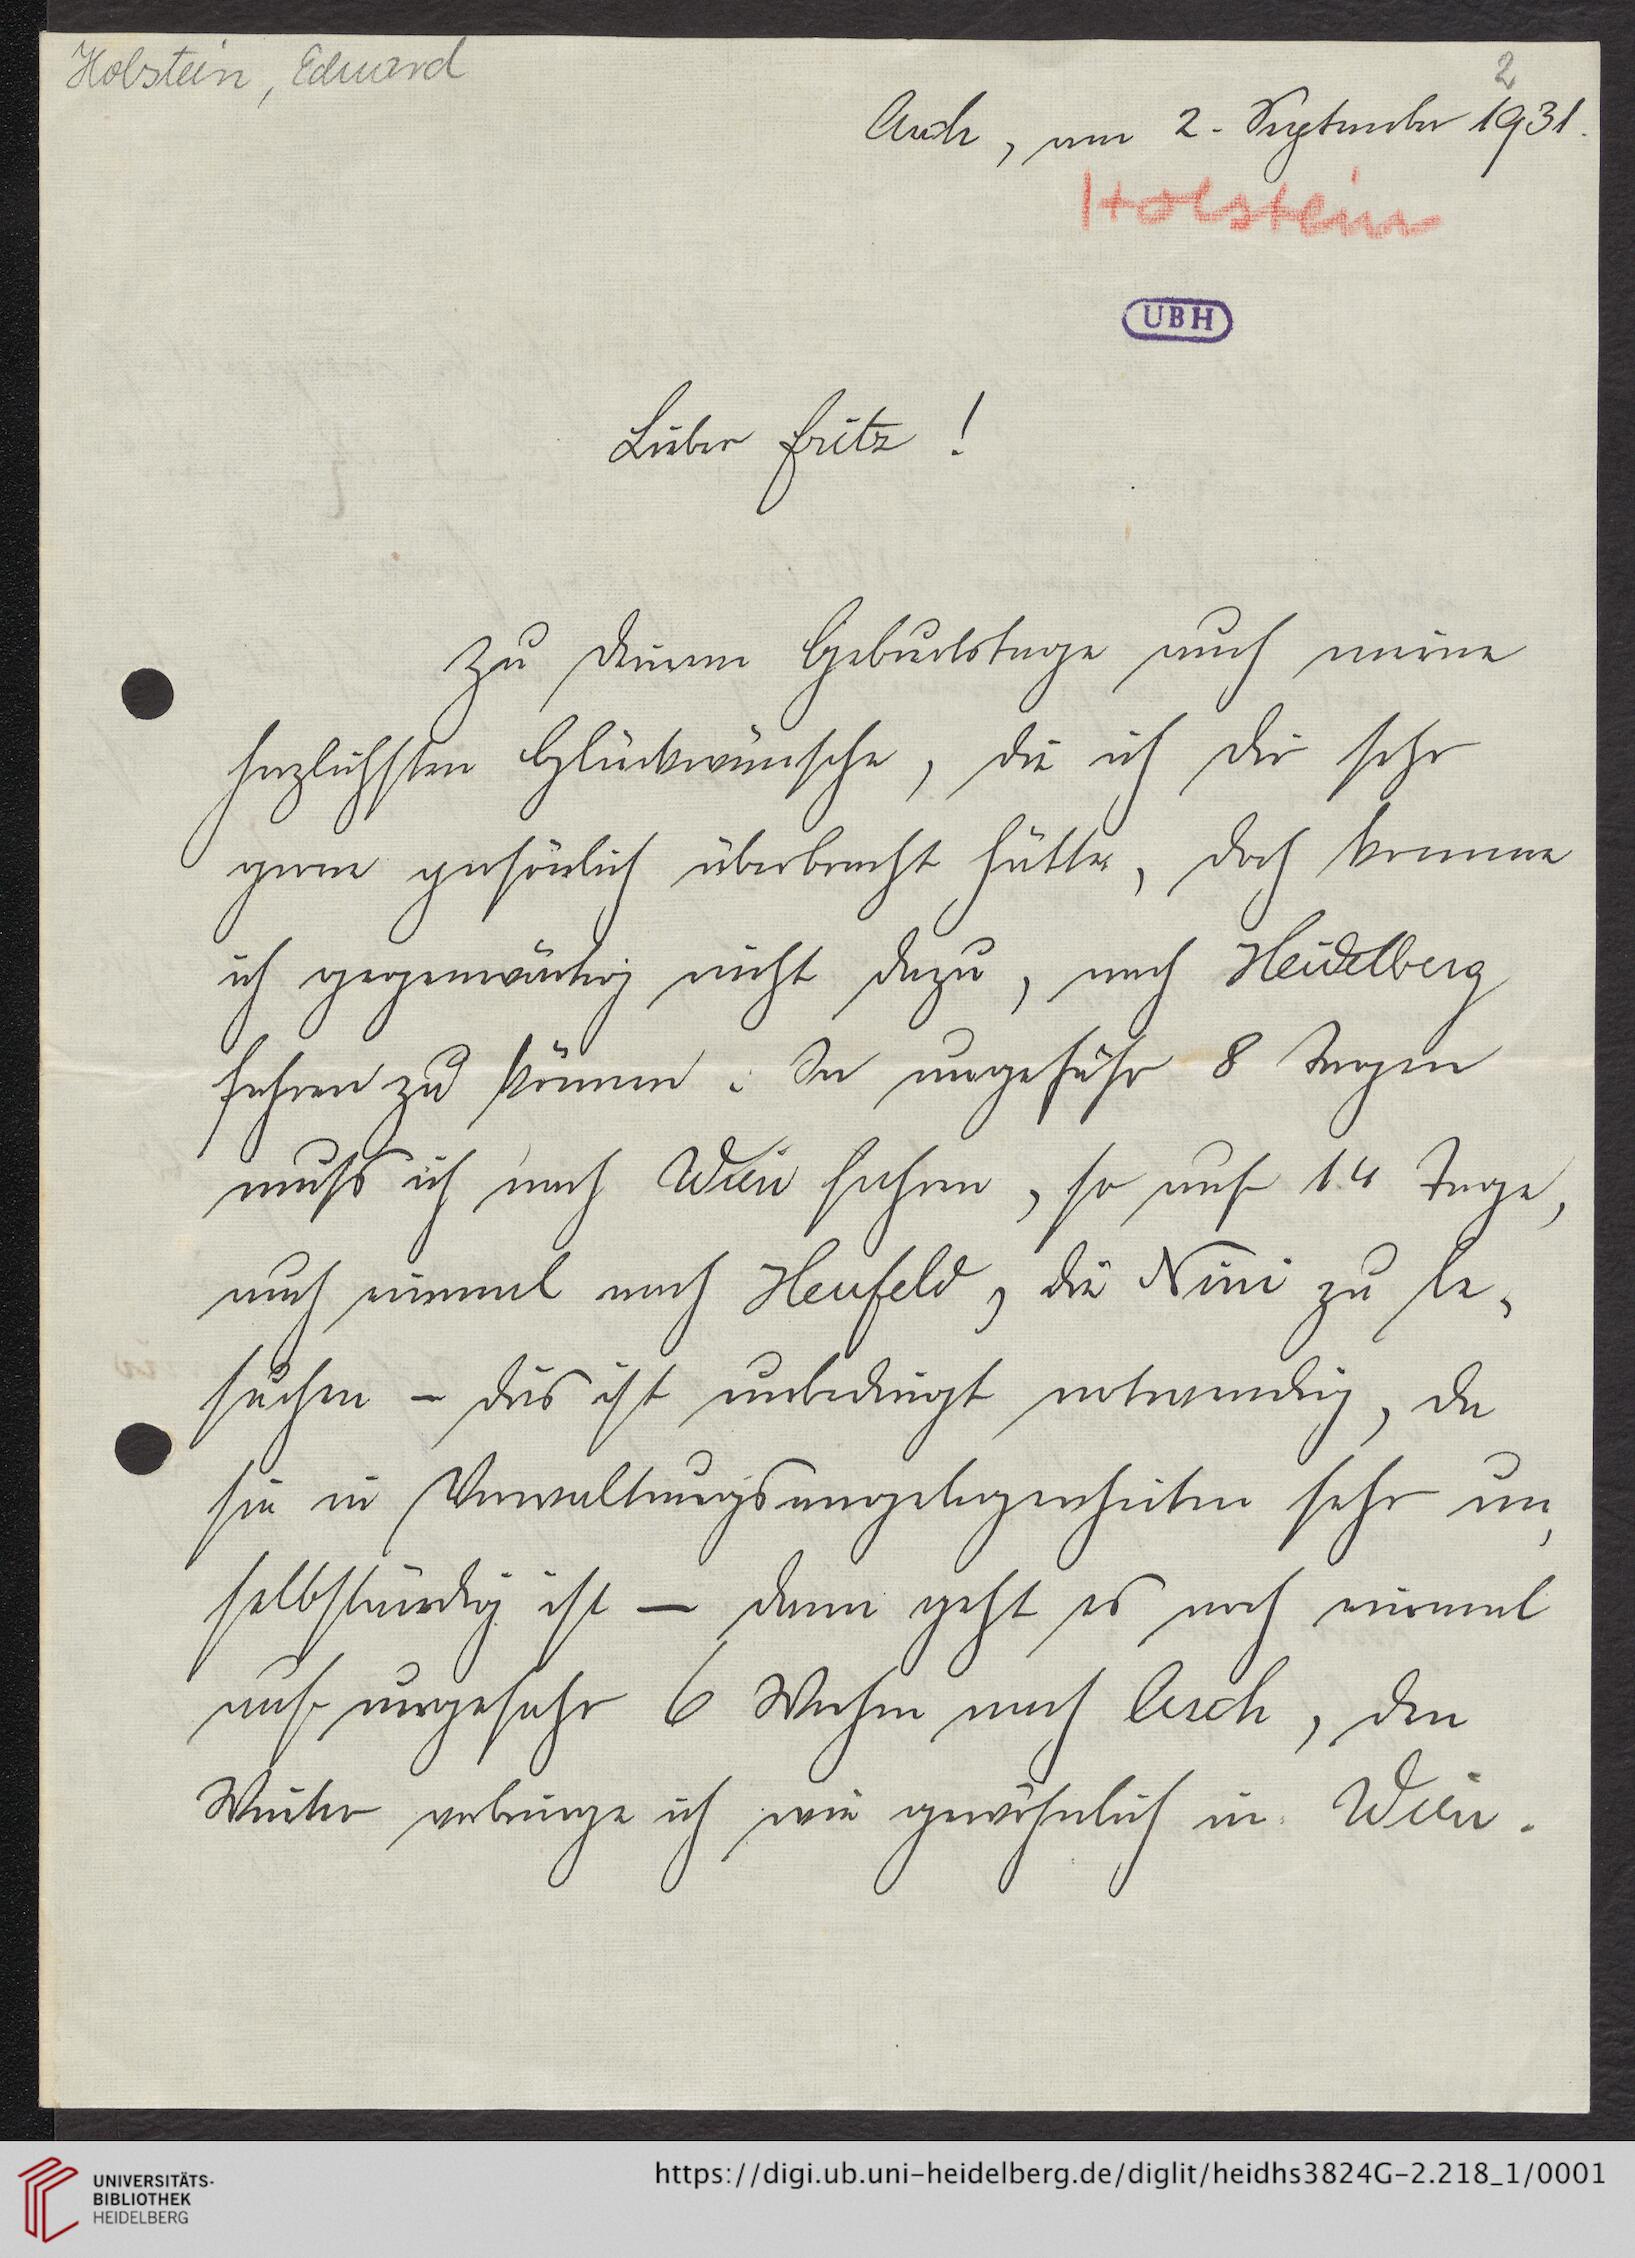 Holstein, Eduard
2
Asch, am 2. September 1931.
Holstein
UBH
Lieber Fritz!
Zu Deinem Geburtstage auch meine
herzlichsten Glückwünsche, die ich Dir sehr
gerne persönlich überbracht hätte, doch komme
ich gegenwärtig nicht dazu, nach Heidelberg
fahren zu können. In ungefähr 8 Tagen
muß ich nach Wien fahren, so auf 14 Tage,
auch einmal nach Heufeld, die Nini zu be-
suchen – dies ist unbedingt notwendig, da
sie in Verwaltungsangelegenheiten sehr un-
selbständig ist – dann geht es noch einmal
auf ungefähr 6 Wochen nach Asch, den
Winter verbringe ich wie gewöhnlich in Wien.
UNIVERSITÄTS-
BIBLIOTHEK
HEIDELBERG
https://digi.ub.uni-heidelberg.de/diglit/heidhs3824G-2.218_1/0001